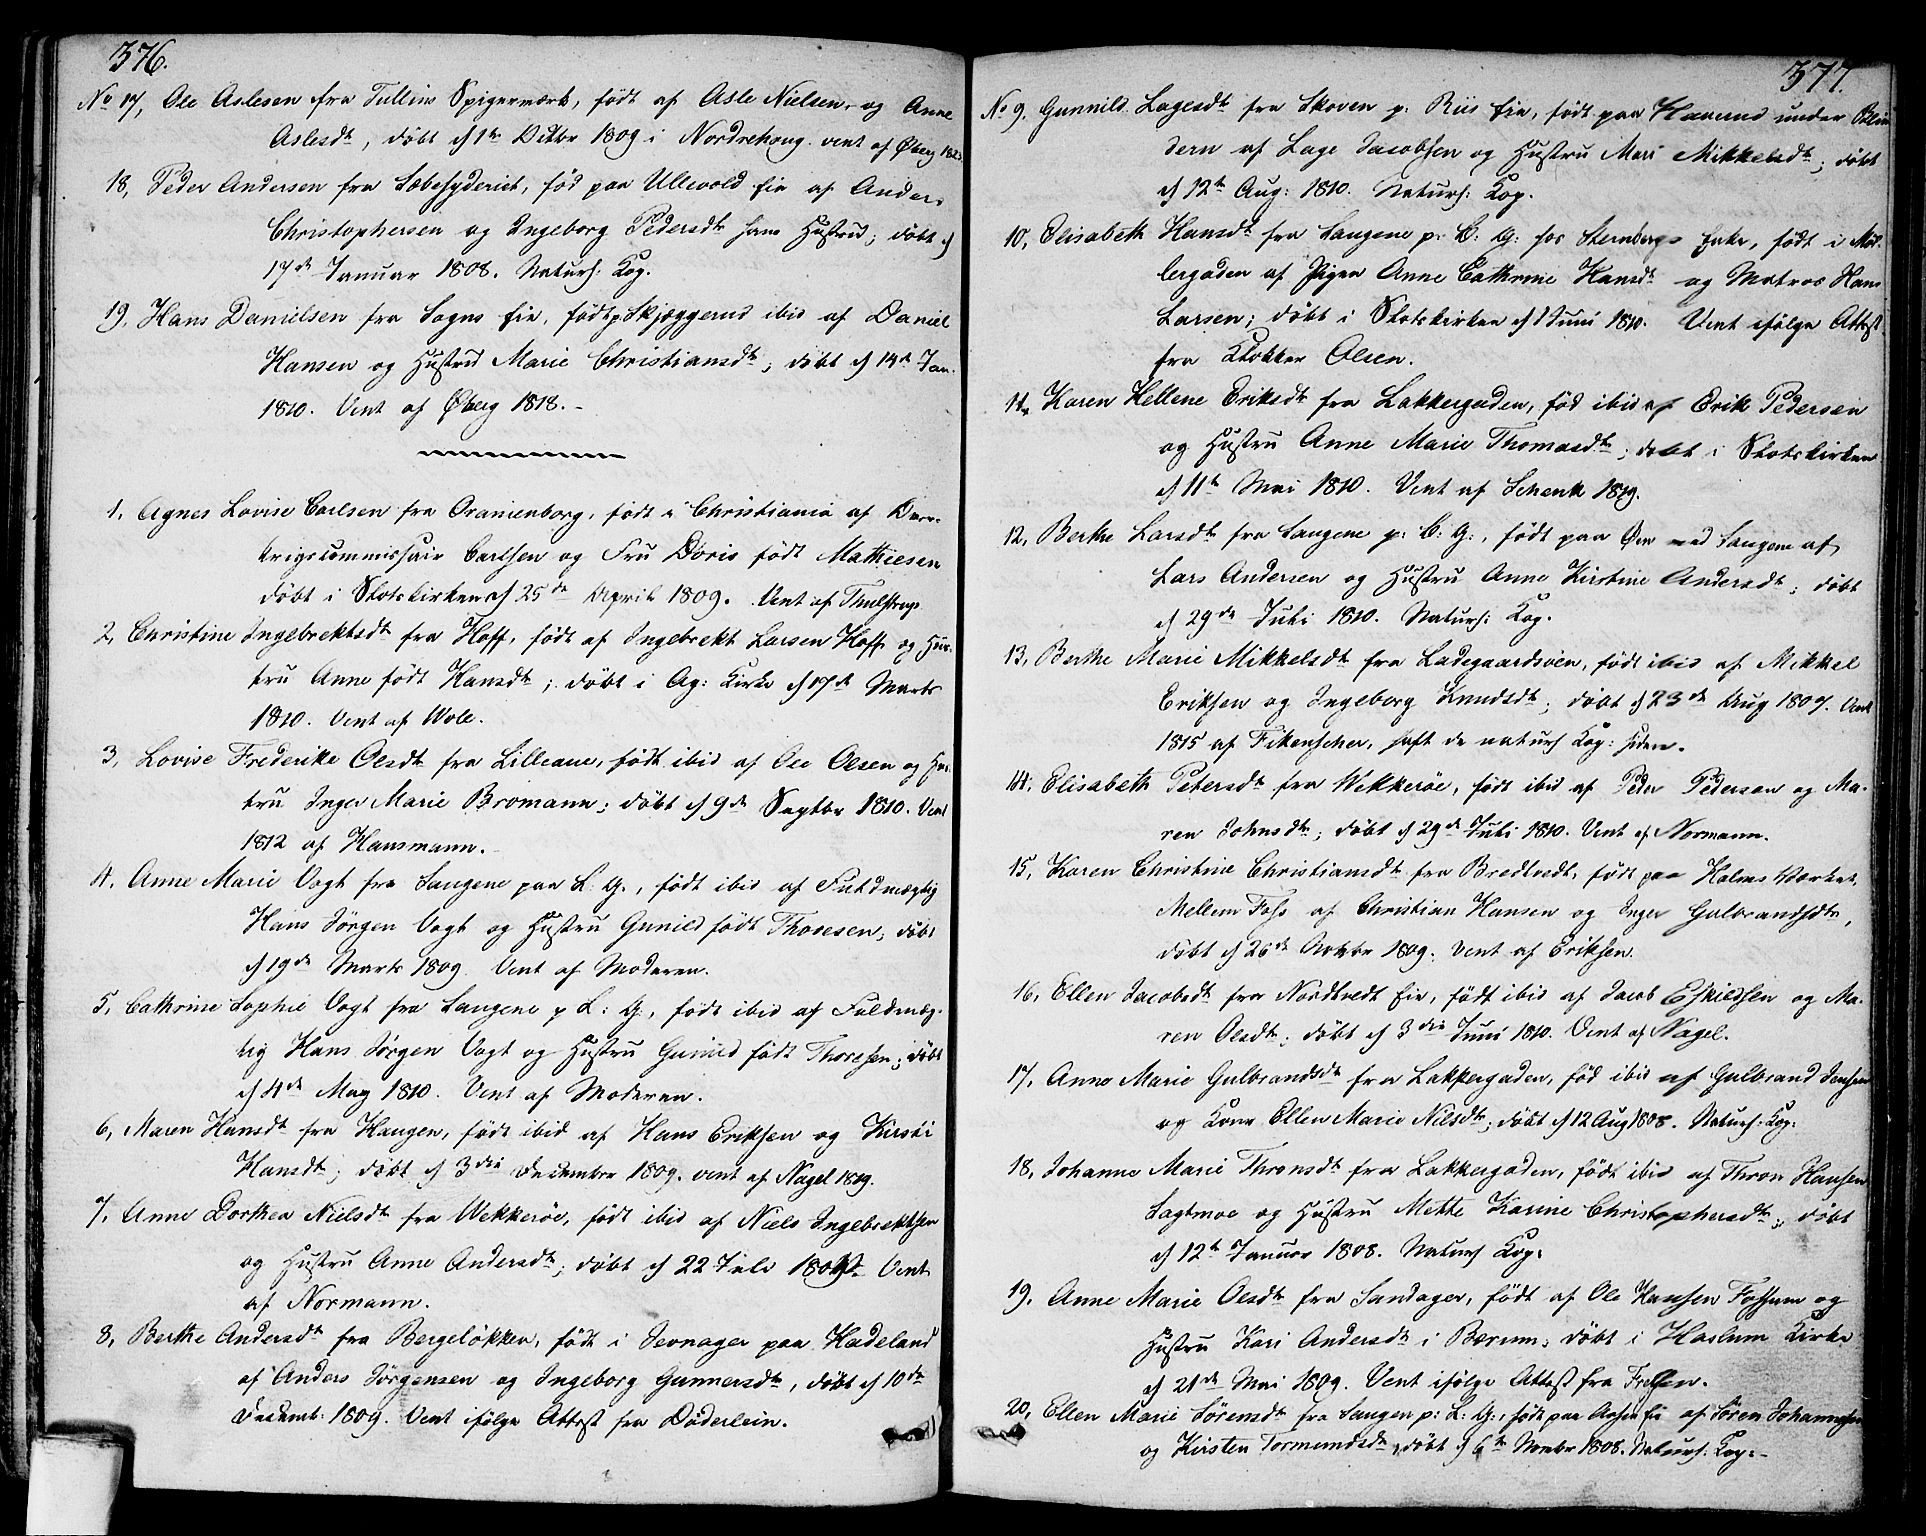 376.
No 17, Ole Aslesen fra Tullins Spigerværk, født af Asle Nielsen og Anne
Aslesdtr, døbt d 1te Octbr 1809 i Nordrehoug. vent af Øberg
18, Peder Andersen fra Sæbesyderiet, fød paa Ullevold Eie af Anders
Christophersen og Ingeborg Pedersdtr hans Hustru; døbt d
17de Januar 1808. Naturl: Kop.
19, Hans Danielsen fra Sogns Eie, født p Skjøggerud ibid af Daniel
Hansen og Hustru Marie Christiansdtr; døbt d 14de Jan.
1810. Vent af Øberg 1818.
1, Agnes Lovise Carlsen fra Oranienborg, født i Christiania af Over-
krigscommissair Carlsen og Fru Doris født Mathiesen
døbt i Slotskirken d 25de April 1809. Vent af Thulstrup.
2, Christine Ingebrektsdtr fra Hoff, født af Ingebrekt Larsen Hoff og Hus-
tru Anne født Hansdtr; døbt i Ag: Kirke d 17de Marts
1810. Vent af Wole.
3, Lovise Frederike Olsdtr fra Lilleaue, født ibid af Ole Olsen og Hus-
tru Inger Marie Bromann; døbt d 9de Septbr 1810. Vent
1812 af Hansmann.
4, Anne Marie Vogt fra Saugene paa L: G:, født ibid af Fuldmægtig
Hans Jørgen Vogt og Hustru Gunild født Thoresen, døbt
d 19de Marts 1809. Vent af Moderen.
5, Cathrine Sophie Vogt fra Saugene p L: G:, født ibid af Fuldmæg-
tig Hans Jørgen Vogt og Hustru Gunild født Thoresen; døbt
d 4de May 1810. Vent af Moderen.
6, Maren Hansdtr fra Haugen, født ibid af Hans Eriksen og Kirsti
Hansdtr; døbt d 3die December 1809. vent af Nagel 1819.
7, Anne Dorthea Nielsdtr fra Wekkerøe, født ibid af Niels Ingebrektsen
og Hustru Anne Andersdtr; døbt d 22 Jule Vent
af Normann.
8, Berthe Andersdtr fra Bergeløkken, født i Jevnager paa Hadeland
af Anders Jørgensen og Ingeborg Gunnersdtr, døbt d 10de
Decemb: 1809. Vent ifølge Attest fra Døderlein.
377.
No 9, Gunnild Lagesdtr fra Skoven p. Riis Eie, født paa under Blin
dern af Lage Jacobsen og Hustru Mari Mikkelsdtr; døbt
d 12te Aug: 1810. Naturl: Kop.
10, Elisabeth Hansdtr fra Saugene p: L: G: hos Stembergs Enke, født i Møl-
lergaden af Pigen Anne Cathrine Hansdtr og Matros Hans
Larsen; døbt i Slotskirken d 1 Juni 1810. Vent ifølge Attest
fra Klokker Olsen.
11, Karen Hellene Eriksdtr fra Lakkergaden, fød ibid af Erik Pedersen
og Hustru Anne Marie Thomasdtr; døbt i Slotskirken
d 11te Mai 1810. Vent af Schenk 1819.
12, Berthe Larsdtr fra Saugene p: L: G:, født paa Øen ved Saugene af
Lars Andersen og Hustru Anne Kirstine Andersdtr; døbt
d 29de Juli 1810. Naturl: Kop.
13, Berthe Marie Mikkelsdtr fra Ladegaardsøen, født ibid af Mikkel
Eriksen og Ingeborg Knudsdtr; døbt d 23de Aug 1807. Vent
1815 af Fikenscher, haft de naturl Kop: siden.
14, Elisabeth Petersdtr fra Wekkerøe, født ibid af Peder Pedersen og Ma-
ren Johnsdtr; døbt d 29de Juli 1810. Vent af Normann.
15, Karen Christine Christiansdtr fra Bredtvedt, født paa Holms Værket,
Mellem Foss af Christian Hansen og Inger Gulbrandsdtr,
døbt d 26de Novbr 1809. Vent af Eriksen.
16, Ellen Jacobsdtr fra Nordtvedt Eie, født ibid af Jacob Eskildsen og Ma-
ren Olsdtr; døbt d 3die Juni 1810. Vent af Nagel.
17, Anne Marie Gulbrandsdtr fra Lakkergaden, fød ibid af Gulbrand Jensen
og Kone Ellen Marie Nilsdtr; døbt d 12 Aug 1808. Naturl: Kop:
18, Johanne Marie Thronsdtr fra Lakkergaden, født ibid af Thron Hansen
Sagtmoe og Hustru Mette Karine Christophersdtr; døbt
d 12te Januar 1808. Naturl Kop:
19, Anne Marie Olsdtr fra Sandager, født af Ole Hansen Fossum og
Hustru Kari Andersdtr i Bærum; døbt i Haslum Kirke
d 21de Mai 1809. Vent ifølge Attest fra
20, Ellen Marie Sørensdtr fra Saugen p: L: G:, født paa Eie af Sören Johannesen
og Kirsten Tormundsdtr, døbt d 6te Novbr 1808. Naturl: Kop: